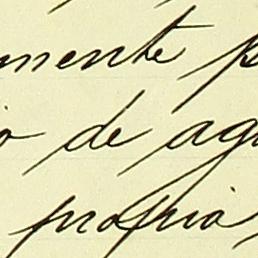 mente p
o de ag
propria